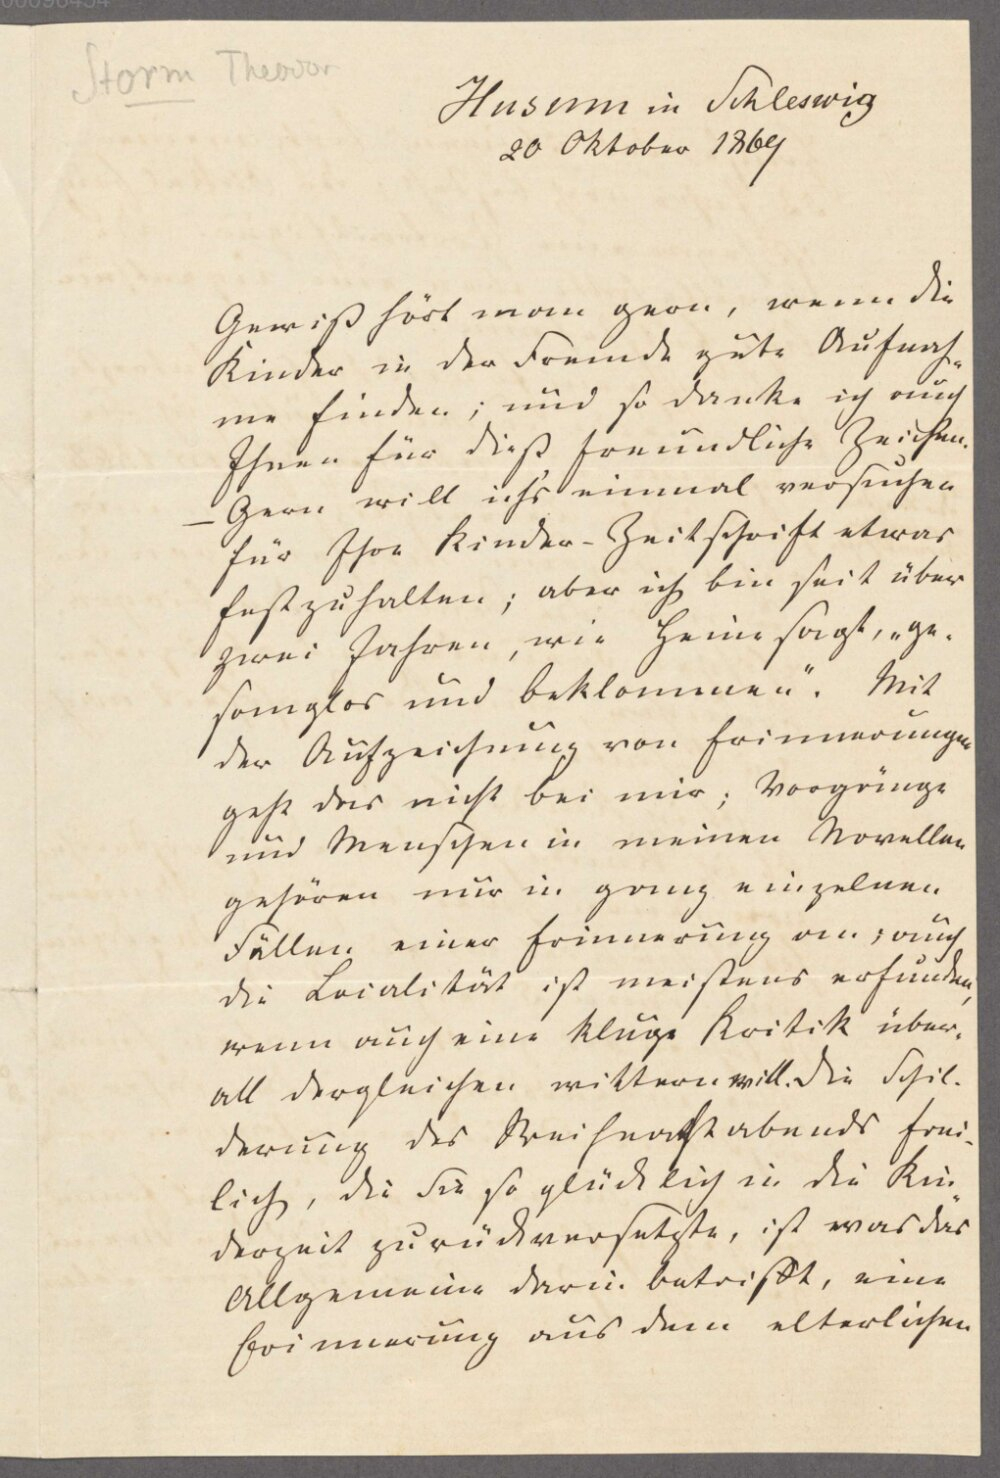 Storm Theodor
Husum in Schleswig
20 Oktober 1869
Gewiß hört man gern, wenn die
Kinder in der Fremde gute Aufnah-
me finden; und so danke ich auch
Ihnen für dieß freundliche Zeichen.
– Gern will ich's einmal versuchen
für Ihre Kinder-Zeitschrift etwas
festzuhalten; aber ich bin seit über
zwei Jahren, wie Heine sagt, „ge-
sanglos und beklommen“. Mit
der Aufzeichnung von Erinnerungen
geht das nicht bei mir; Vorgänge
und Menschen in meinen Novellen
gehören nur in ganz einzelnen
Fällen einer Erinnerung an; auch
die Localität ist meistens erfunden,
wenn auch eine kluge Kritik über-
all dergleichen wittern will. Die Schil-
derung des Weihnachtabends frei-
lich, die Sie so glücklich in die Kin-
derzeit zurückversetzte, ist was das
Allgemeine darin betrifft, eine
Erinnerung aus dem elterlichen